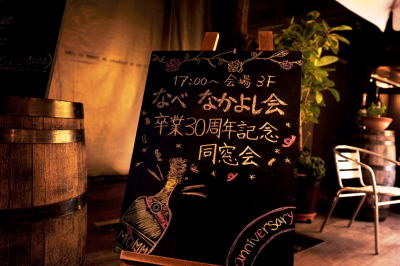 17:00～ 会場3F
なべ なかよし会
卒業30周年記念
同窓会
MUMM
anniversary